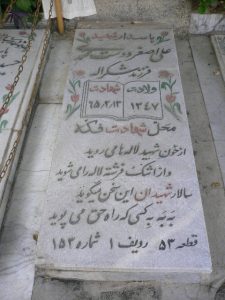 پاسدار شهید
علی اصغر دوست
فرزند شکراله
ولادت شهادت
۱۳۴۷ ۶۵/۲/۱۳
محل شهادت فکه
از خون شهید لاله ها می روید
وز اشک فرشته لاله را می شوید
سالار شهیدان این سخن میگوید
به به به کسی که راه حق می پوید
قطعه ۵۳ ردیف ۱ شماره ۱۵۳